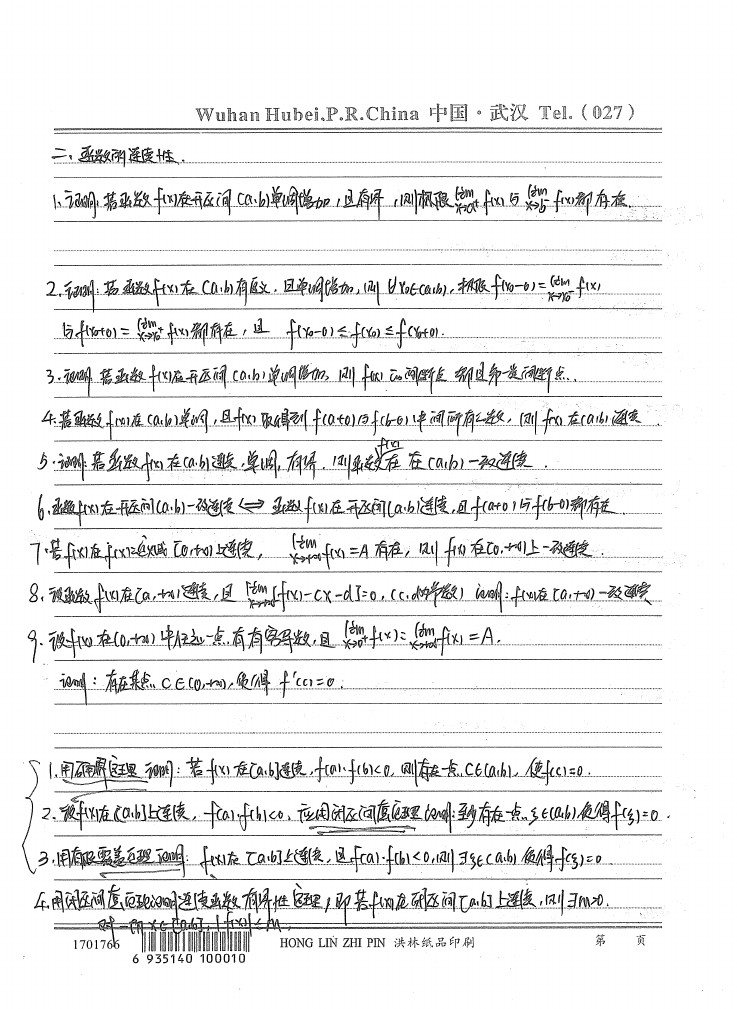 Wuhan Hubei,P.R.China 中国·武汉 Tel.(027)
二、函数的连续性.
1、证明:若函数f(x)在开区间(a,b)单调增加,且有界,则极限 lim x→a⁺ f(x)与 lim x→b⁻ f(x)都存在.
2、证明:若函数f(x)在(a,b)有定义,且单调增加,则∀x₀∈(a,b),极限f(x₀-0)=lim x→x₀⁻ f(x)
与f(x₀+0)=lim x→x₀⁺ f(x)都存在,且 f(x₀-0)≤f(x₀)≤f(x₀+0).
3.证明:若函数f(x)在开区间(a,b)单调增加,则f(x)的间断点都是第一类间断点.
4.若函数f(x)在(a,b)单调,且f(x)取得到f(a+0)与f(b-0)中间所有之数,则f(x)在(a,b)连续
5.证明:若函数f(x)在(a,b)连续,单调,有界,则函数f(x)在(a,b)一致连续.
6.函数f(x)在开区间(a,b)一致连续⇔函数f(x)在开区间(a,b)连续,且f(a+0)与f(b-0)都存在
7.若f(x)在[0,+∞)上连续, lim x→+∞ f(x)=A存在,则f(x)在[0,+∞)上一致连续.
8、设函数f(x)在[a,+∞)连续,且 lim x→+∞ [f(x)-cx-d]=0,(c,d为常数) 证明:f(x)在[a,+∞)一致连续
9.设f(x)在(0,+∞)中任意一点有有穷导数,且 lim x→0⁺ f(x)=lim x→+∞ f(x)=A.
证明:存在某点 C∈(0,+∞),使得 f'(c)=0.
1.用确界定理证明:若f(x)在[a,b]连续,f(a)·f(b)<0,则存在一点C∈(a,b),使f(c)=0.
2.设f(x)在[a,b]上连续,f(a)·f(b)<0,应用闭区间套定理证明:至少存在一点ξ∈(a,b),使得f(ξ)=0.
3.用有限覆盖定理证明:f(x)在[a,b]上连续,且f(a)·f(b)<0,则∃ξ∈(a,b)使得f(ξ)=0
4.用闭区间套定理证明连续函数有界性定理,即若f(x)在闭区间[a,b]上连续,则∃M>0.
对一切x∈[a,b],|f(x)|≤M.
1701766 HONG LIN ZHI PIN 洪林纸品印刷 第 页
6 935140 100010